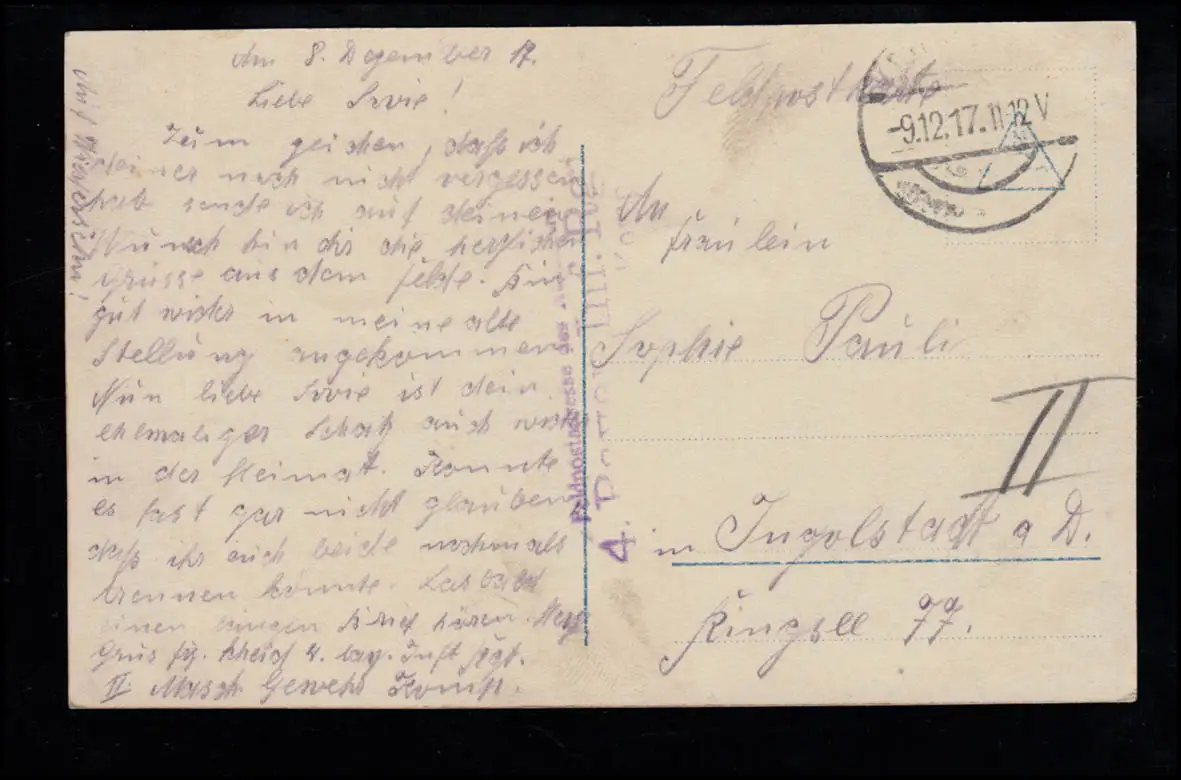 Am 8. Dezember 17.
Liebe
Zum zeichen, daß ich
deiner noch nicht vergessen
hab sende ich auf deinen
Wunsch hin dir die herzlichen
Grüsse aus dem Felde. Bin
gut wieder in meine alte
Stellung angekommen
Nun liebe ist dein
ehemaliger Schatz auch wieder
in der Heimat. Konnte
es fast gar nicht glauben
daß ihr euch beide nochmals
trennen konnte.
einen Brief hören. Herzl
Grus 4. bay. Inft Rgt.
II Masch Gewehr Komp.
auf Wiedersehn!
Feldpostkarte
-9.12.17.11-12V
An
Fräulein
Sophie Pauli
II
in Ingolstadt a D.
77.
Feldpostadresse des
4.